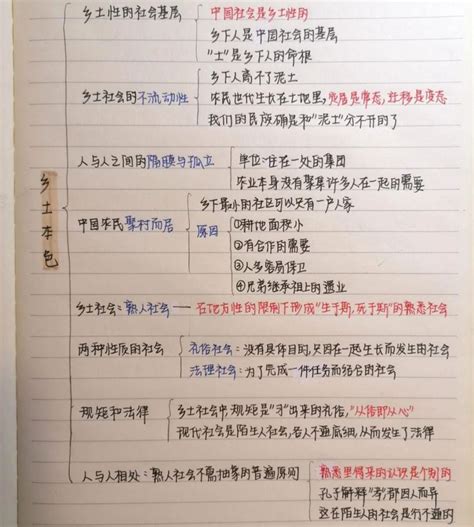 乡土本色
乡土性的社会基层
中国社会是乡土性的
乡下人是中国社会的基层
"土"是乡下人的命根
乡土社会的不流动性
乡下人离不了泥土
农民世代生长在土地里,定居是常态,迁移是变态
我们的民族确是和"泥土"分不开的了
人与人之间的隔膜与孤立
单位:住在一处的集团
农业本身没有聚集许多人在一起的需要
中国农民聚村而居
乡下最小的社区可以只有一户人家
原因
①耕地面积小
②有合作的需要
③人多容易保卫
④兄弟继承祖上的遗业
乡土社会:熟人社会——在地方性的限制下形成"生于斯,死于斯"的熟悉社会
两种性质的社会
礼俗社会:没有具体目的,只因在一起生长而发生的社会
法理社会:为了完成一件任务而结合的社会
规矩和法律
乡土社会中规矩是"习"出来的礼俗,"从俗即从心"
现代社会是陌生人社会,各人不知底细,从而发生了法律
人与人相处:熟人社会不需抽象的普遍原则
熟悉里得来的认识是个别的
孔子解释"孝"都因人而异
这在陌生人的社会是行不通的